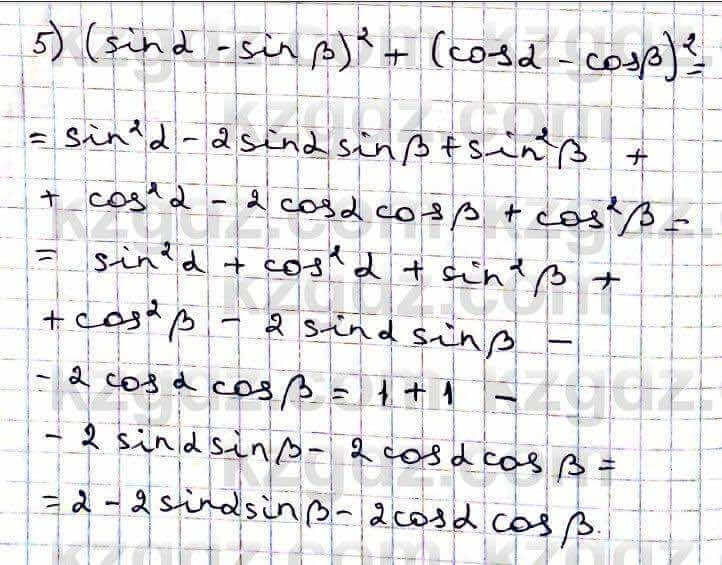 5) (sinα - sin β)² + (cosα - cosβ)² =
= sin²α - 2sinα sinβ + sin²β +
+ cos²α - 2 cosα cosβ + cos²β -
= sin²α + cos²α + sin²β +
+ cos²β - 2 sinα sinβ -
- 2 cosα cosβ = 1 + 1 -
- 2 sinα sinβ - 2 cosα cos β =
= 2 - 2sinα sinβ - 2cosα cosβ.
kzgdz.com